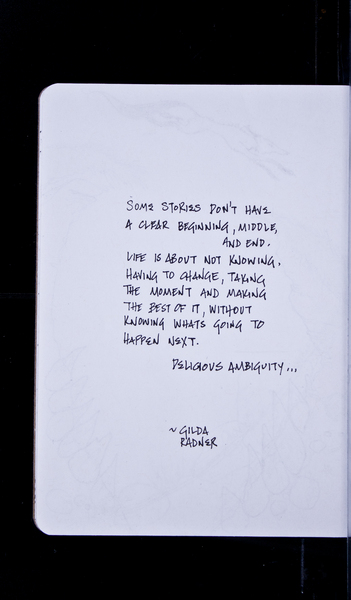 SOME STORIES DON'T HAVE
A CLEAR BEGINNING, MIDDLE,
AND END.
LIFE IS ABOUT NOT KNOWING,
HAVING TO CHANGE, TAKING
THE MOMENT AND MAKING
THE BEST OF IT, WITHOUT
KNOWING WHATS GOING TO
HAPPEN NEXT.
DELICIOUS AMBIGUITY...
~ GILDA
RADNER